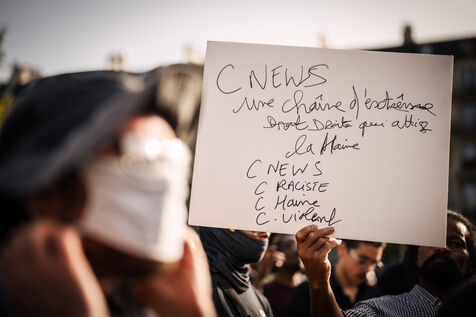 C NEWS
une chaîne d'extrême
Droit Droite qui attise
la Haine
C NEWS
C RACISTE
C Haine
C. Violent